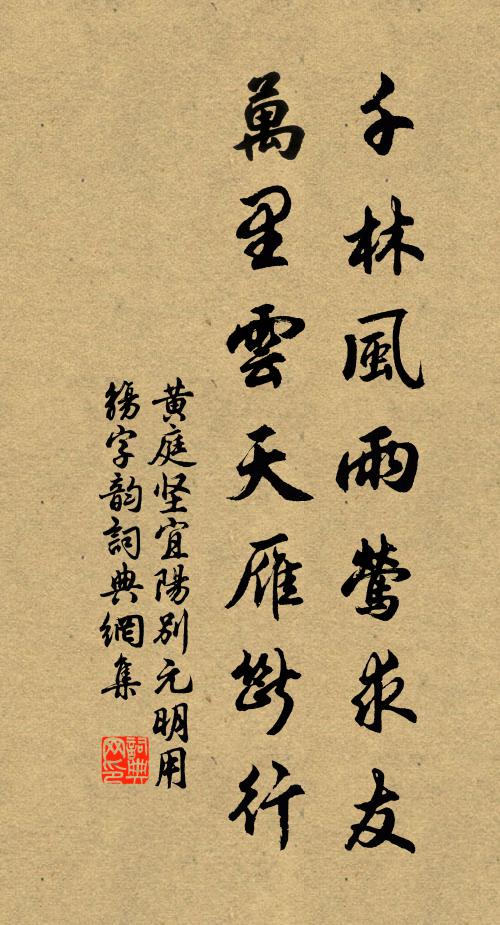 千林風雨鶯求友
萬里雲天雁斷行
黄庭坚宜陽別元明用
觴字韵詞典網集
詞典
网印